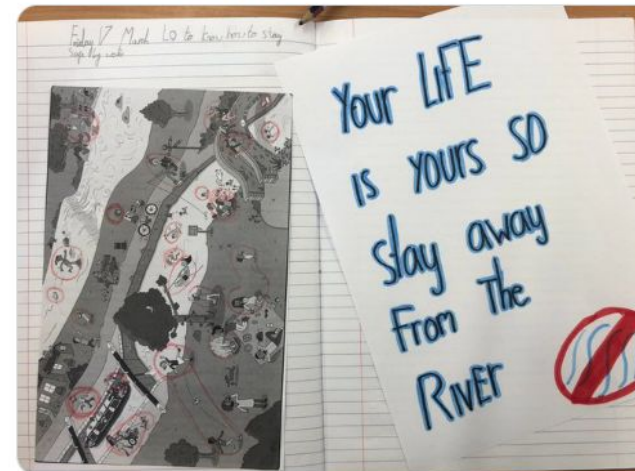 Friday 17 March LO to know how to stay
safe by water
YOUR LIFE
is YOURS SO
stay away
From The
RIVER